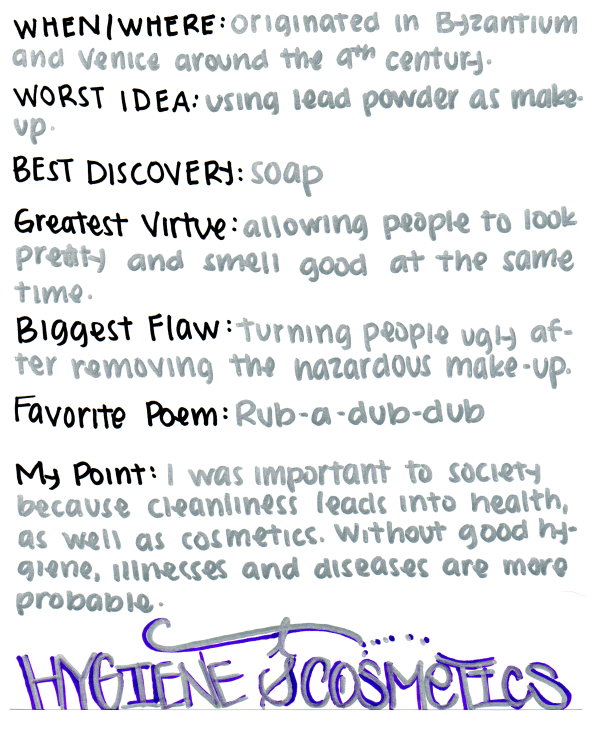 WHEN/WHERE: originated in Byzantium
and Venice around the 9th century.
WORST IDEA: using lead powder as make-
up.
BEST DISCOVERY: soap
Greatest Virtue: allowing people to look
pretty and smell good at the same
time.
Biggest Flaw: turning people ugly af-
ter removing the hazardous make-up.
Favorite Poem: Rub-a-dub-dub
My Point: I was important to society
because cleanliness leads into health,
as well as cosmetics. Without good hy-
giene, illnesses and diseases are more
probable.
HYGIENE & COSMETICS